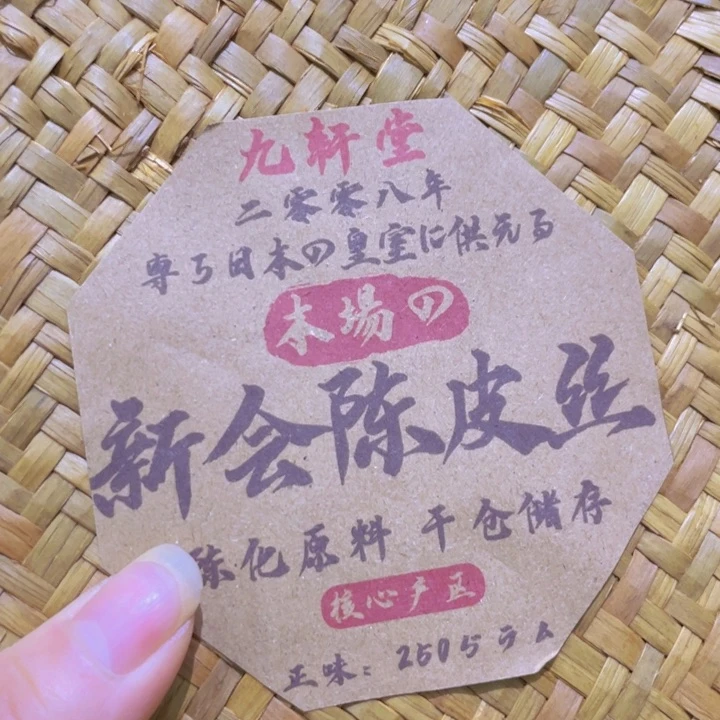 九轩堂
二零零八年
専ら日本の皇室に供元る
本場の
新会陈皮丝
陈化原料 干仓储存
核心产区
正味：250ちラム